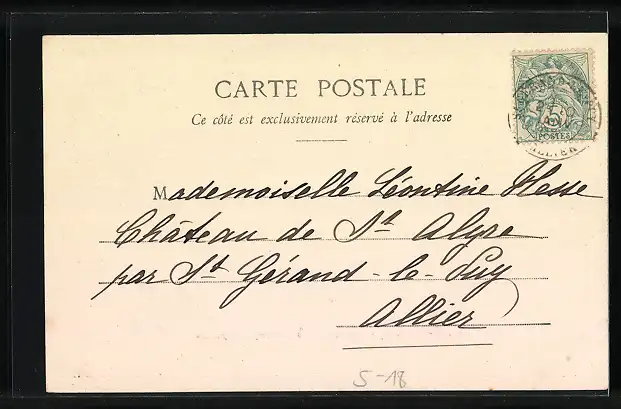 CARTE POSTALE
Ce côté est exclusivement réservé à l'adresse
5
POSTES
ALLIER
Mademoiselle Léontine Hesse
Château de St Alyre
par St Gérand-le-Puy
Allier
5-18